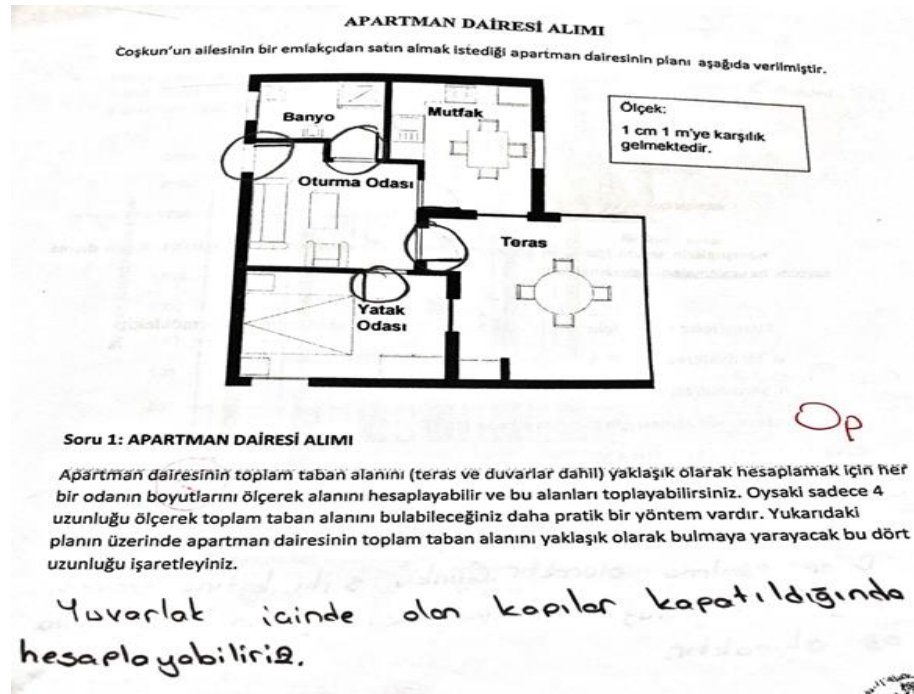 APARTMAN DAİRESİ ALIMI
Coşkun'un ailesinin bir emlakçıdan satın almak istediği apartman dairesinin planı aşağıda verilmiştir.
Banyo
Mutfak
Ölçek:
1 cm 1 m'ye karşılık
gelmektedir.
Oturma Odası
Teras
Yatak
Odası
0p
Soru 1: APARTMAN DAİRESİ ALIMI
Apartman dairesinin toplam taban alanını (teras ve duvarlar dahil) yaklaşık olarak hesaplamak için her
bir odanın boyutlarını ölçerek alanını hesaplayabilir ve bu alanları toplayabilirsiniz. Oysaki sadece 4
uzunluğu ölçerek toplam taban alanını bulabileceğiniz daha pratik bir yöntem vardır. Yukarıdaki
planın üzerinde apartman dairesinin toplam taban alanını yaklaşık olarak bulmaya yarayacak bu dört
uzunluğu işaretleyiniz.
Yuvarlak içinde olan kapılar kapatıldığında
hesaplayabiliriz.